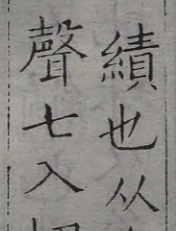 績也从
聲七入